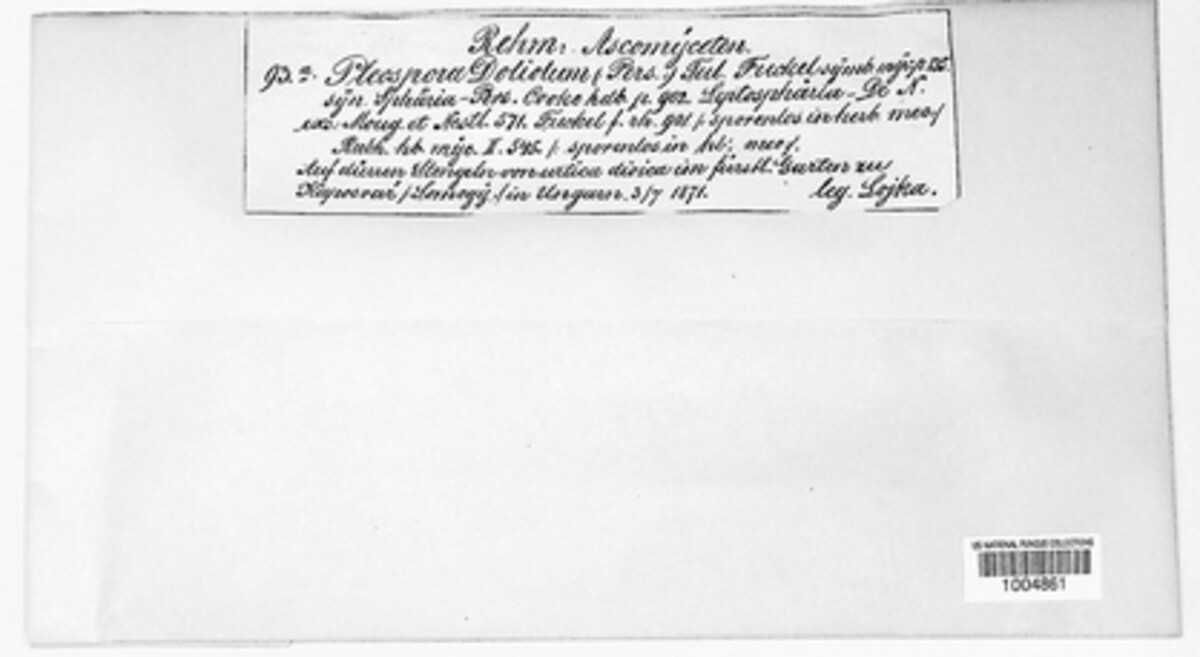 Rehm. Ascomyceten.
93.a. Pleospora Doliolum (Pers.) Tul. Fuckel symb. myc. p.
syn. Sphäria - Prs. Cooke hdb. p. 902. Leptosphäria - De N.
exs. Moug. et Nestl. 571. Fuckel f. rh. 901 (sporenlos in herb. meo)
Rabh. hb. myc. II. 545 (sporenlos in hb. meo).
Auf dürren Stengeln von urtica dioica im fürstl. Garten zu
Kaposvar (Somogy.) in Ungarn. 3/7 1871. leg. Lojka.
US NATIONAL FUNGUS COLLECTIONS
1004861